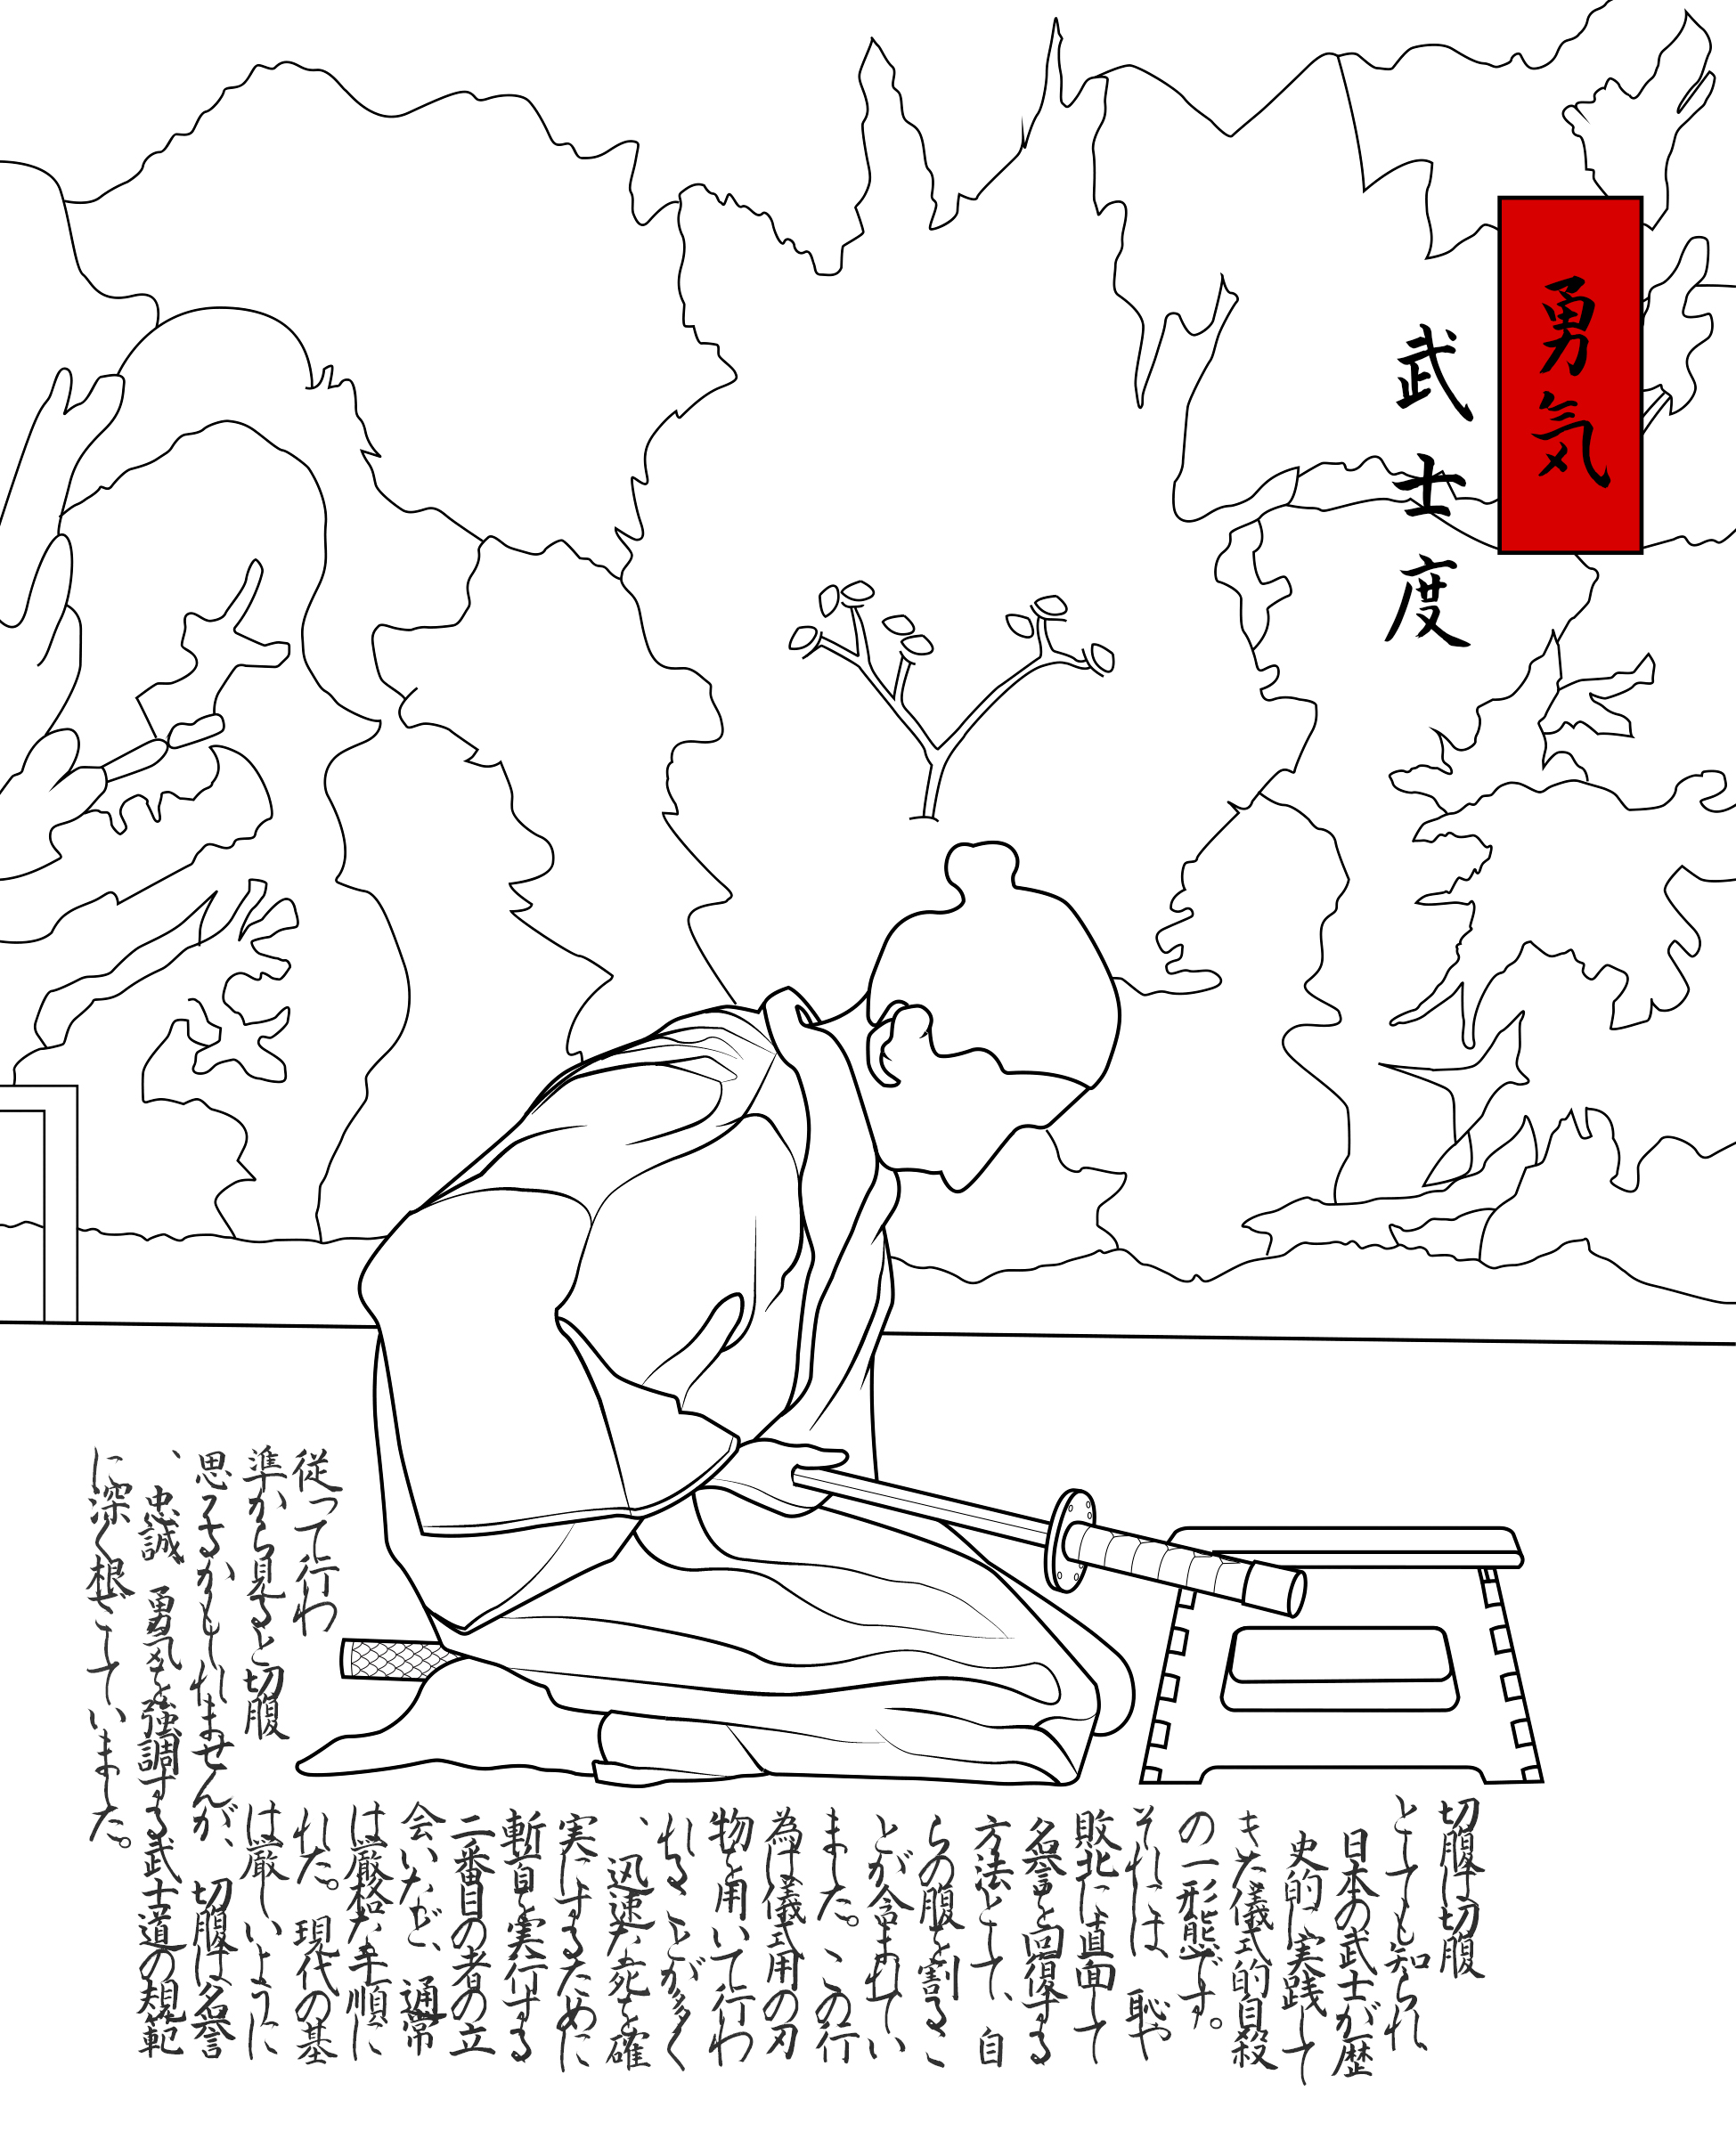 勇気
武士度
切腹は切腹
とても知られ、
日本の武士が歴
史的に実践して
きた儀式的自殺
の一形態です。
それには、恥や
敗北に直面して
名誉を回復する
方法として、自
らの腹を割るこ
とが含まれてい
ました。この行
為は儀式用の刃
物を用いて行わ
れることが多く
、迅速な死を確
実にするために
斬首を実行する
二番目の者の立
会いなど、通常
は厳格な手順に
従って行われた。現代の基
準から見ると切腹は厳しいように
思えるかもしれませんが、切腹は名誉
、忠誠 勇気を強調する武士道の規範
に深く根ざしていました。